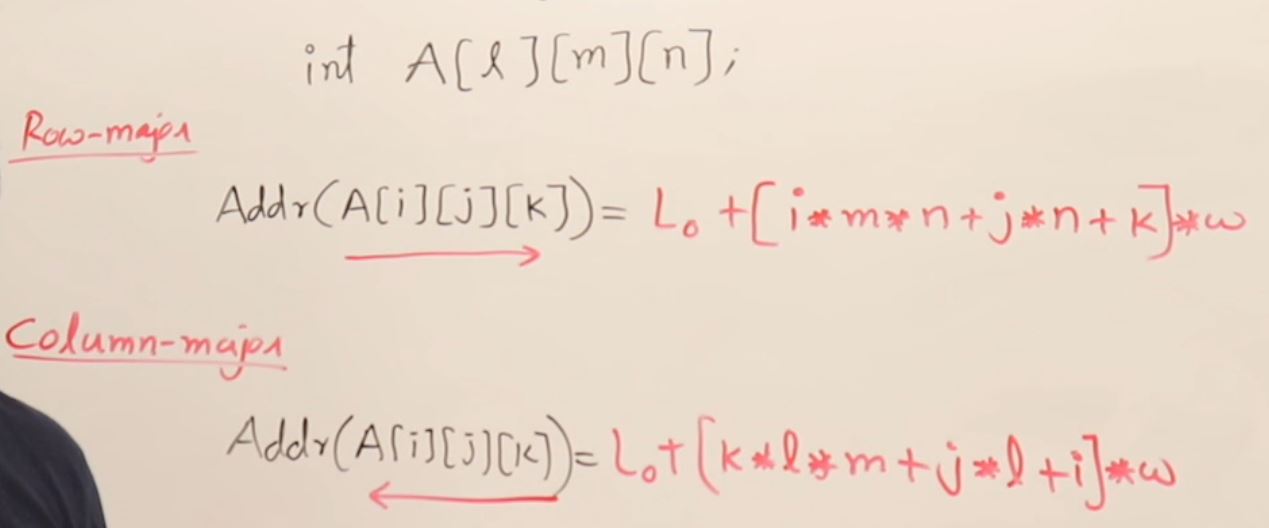 int A[l][m][n];
Row-major
Addr(A[i][j][k]) = L₀ + [i*m*n + j*n + k]*w
Column-major
Addr(A[i][j][k]) = L₀ + [k*l*m + j*l + i]*w